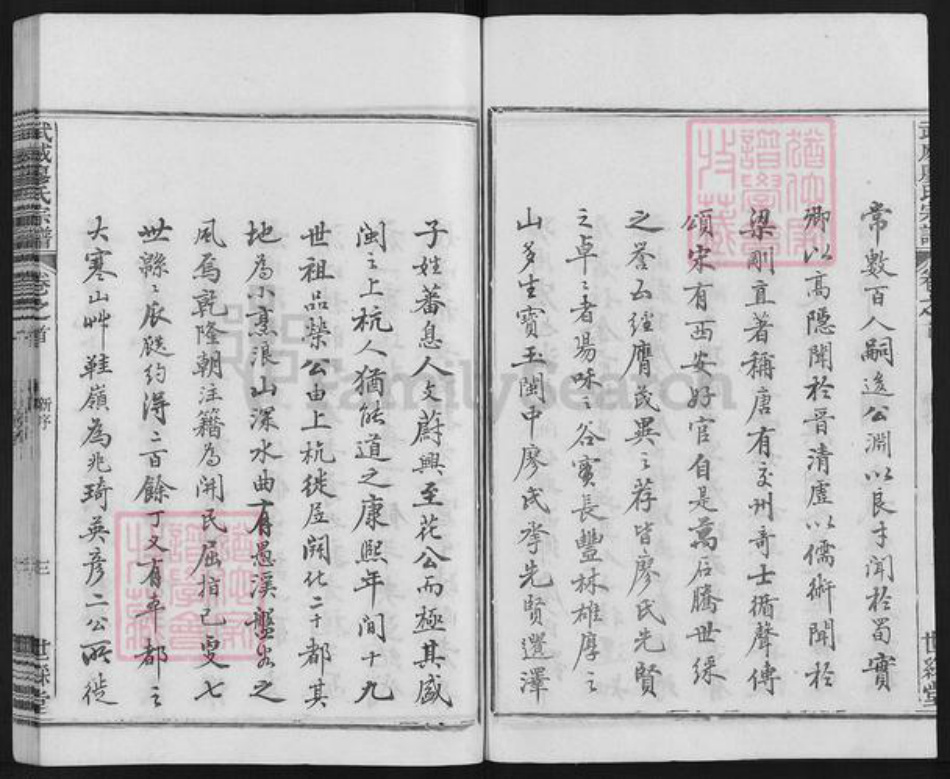 常數百人嗣遂公淵以良才聞於蜀實
卿以高隱聞於晉清虛以儒術聞於
梁剛直著稱唐有交州奇士循聲傳
頌宋有西安好官自是萬石騰世綵
之譽五經膺茂異之荐皆廖氏先賢
之卓之者場味之谷賓長豐林雄厚之
山多生寶玉閩中廖氏孝先賢選澤
子姓蕃息人文蔚興至花公而極其盛
閩之上杭人猶能道之康熙年間十九
世祖品榮公由上杭徙居開化二十都其
地為小京浪山深水曲有愚溪盤谷之
風焉乾隆朝注籍為開民屈指已更七
世緜之辰縱約得二百餘丁又有車都之
大寒山艸鞋嶺為兆琦英彥二公所徙
武威廖氏宗譜
卷之首
新序
三
世綵堂
武威廖氏宗譜
卷之首
世綵堂
FamilySearch